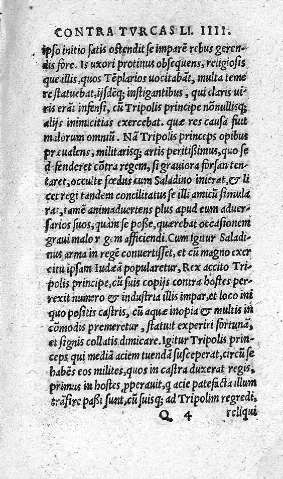 CONTRA TVRCAS LI. IIII.
ipso initio satis ostendit se imparē rebus geren
dis fore. Is uxori protinus obsequens, religiosis
que illis, quos Tēplarios uocitabāt, multa teme
re statuebat, ijsdēq; instigantibus, qui claris ui
ris erāt infensi, cū Tripolis principe nōnullisq;
alijs inimicitias exercebat. que res causa fuit
malorum omniū. Nā Tripolis princeps opibus
præualens, militarisq; artis peritissimus, quo se
defenderet cōtra regem, si grauiora forsan ten
taret, occulte fœdus cum Saladino inierat, & li
cet regi tandem conciliatus se illi amicū simula
ra, tamē animaduertens plus apud eum aduer-
sarios suos, quàm se posse, quærebat occasionem
graui malo regem afficiendi. Cum igitur Saladi-
nus arma in regē conuertisset, et cū magno exer
citu ipsam Iudeā popularetur, Rex accito Tri-
polis principe, cū suis copijs contra hostes per-
rexit numero & industria illis impar, et loco ini
quo positis castris, cū aquæ inopia & multis in
cōmodis premeretur, statuit experiri fortunā,
et signis collatis dimicare. Igitur Tripolis prin-
ceps qui mediā aciem tuendā susceperat, circū se
habēs eos milites, quos in castra duxerat regis,
primus in hostes, pperauit, q ac patefacta illum
trāsire passi sunt, cū suisq; ad Tripolim regredi,
Q 4 reliqui